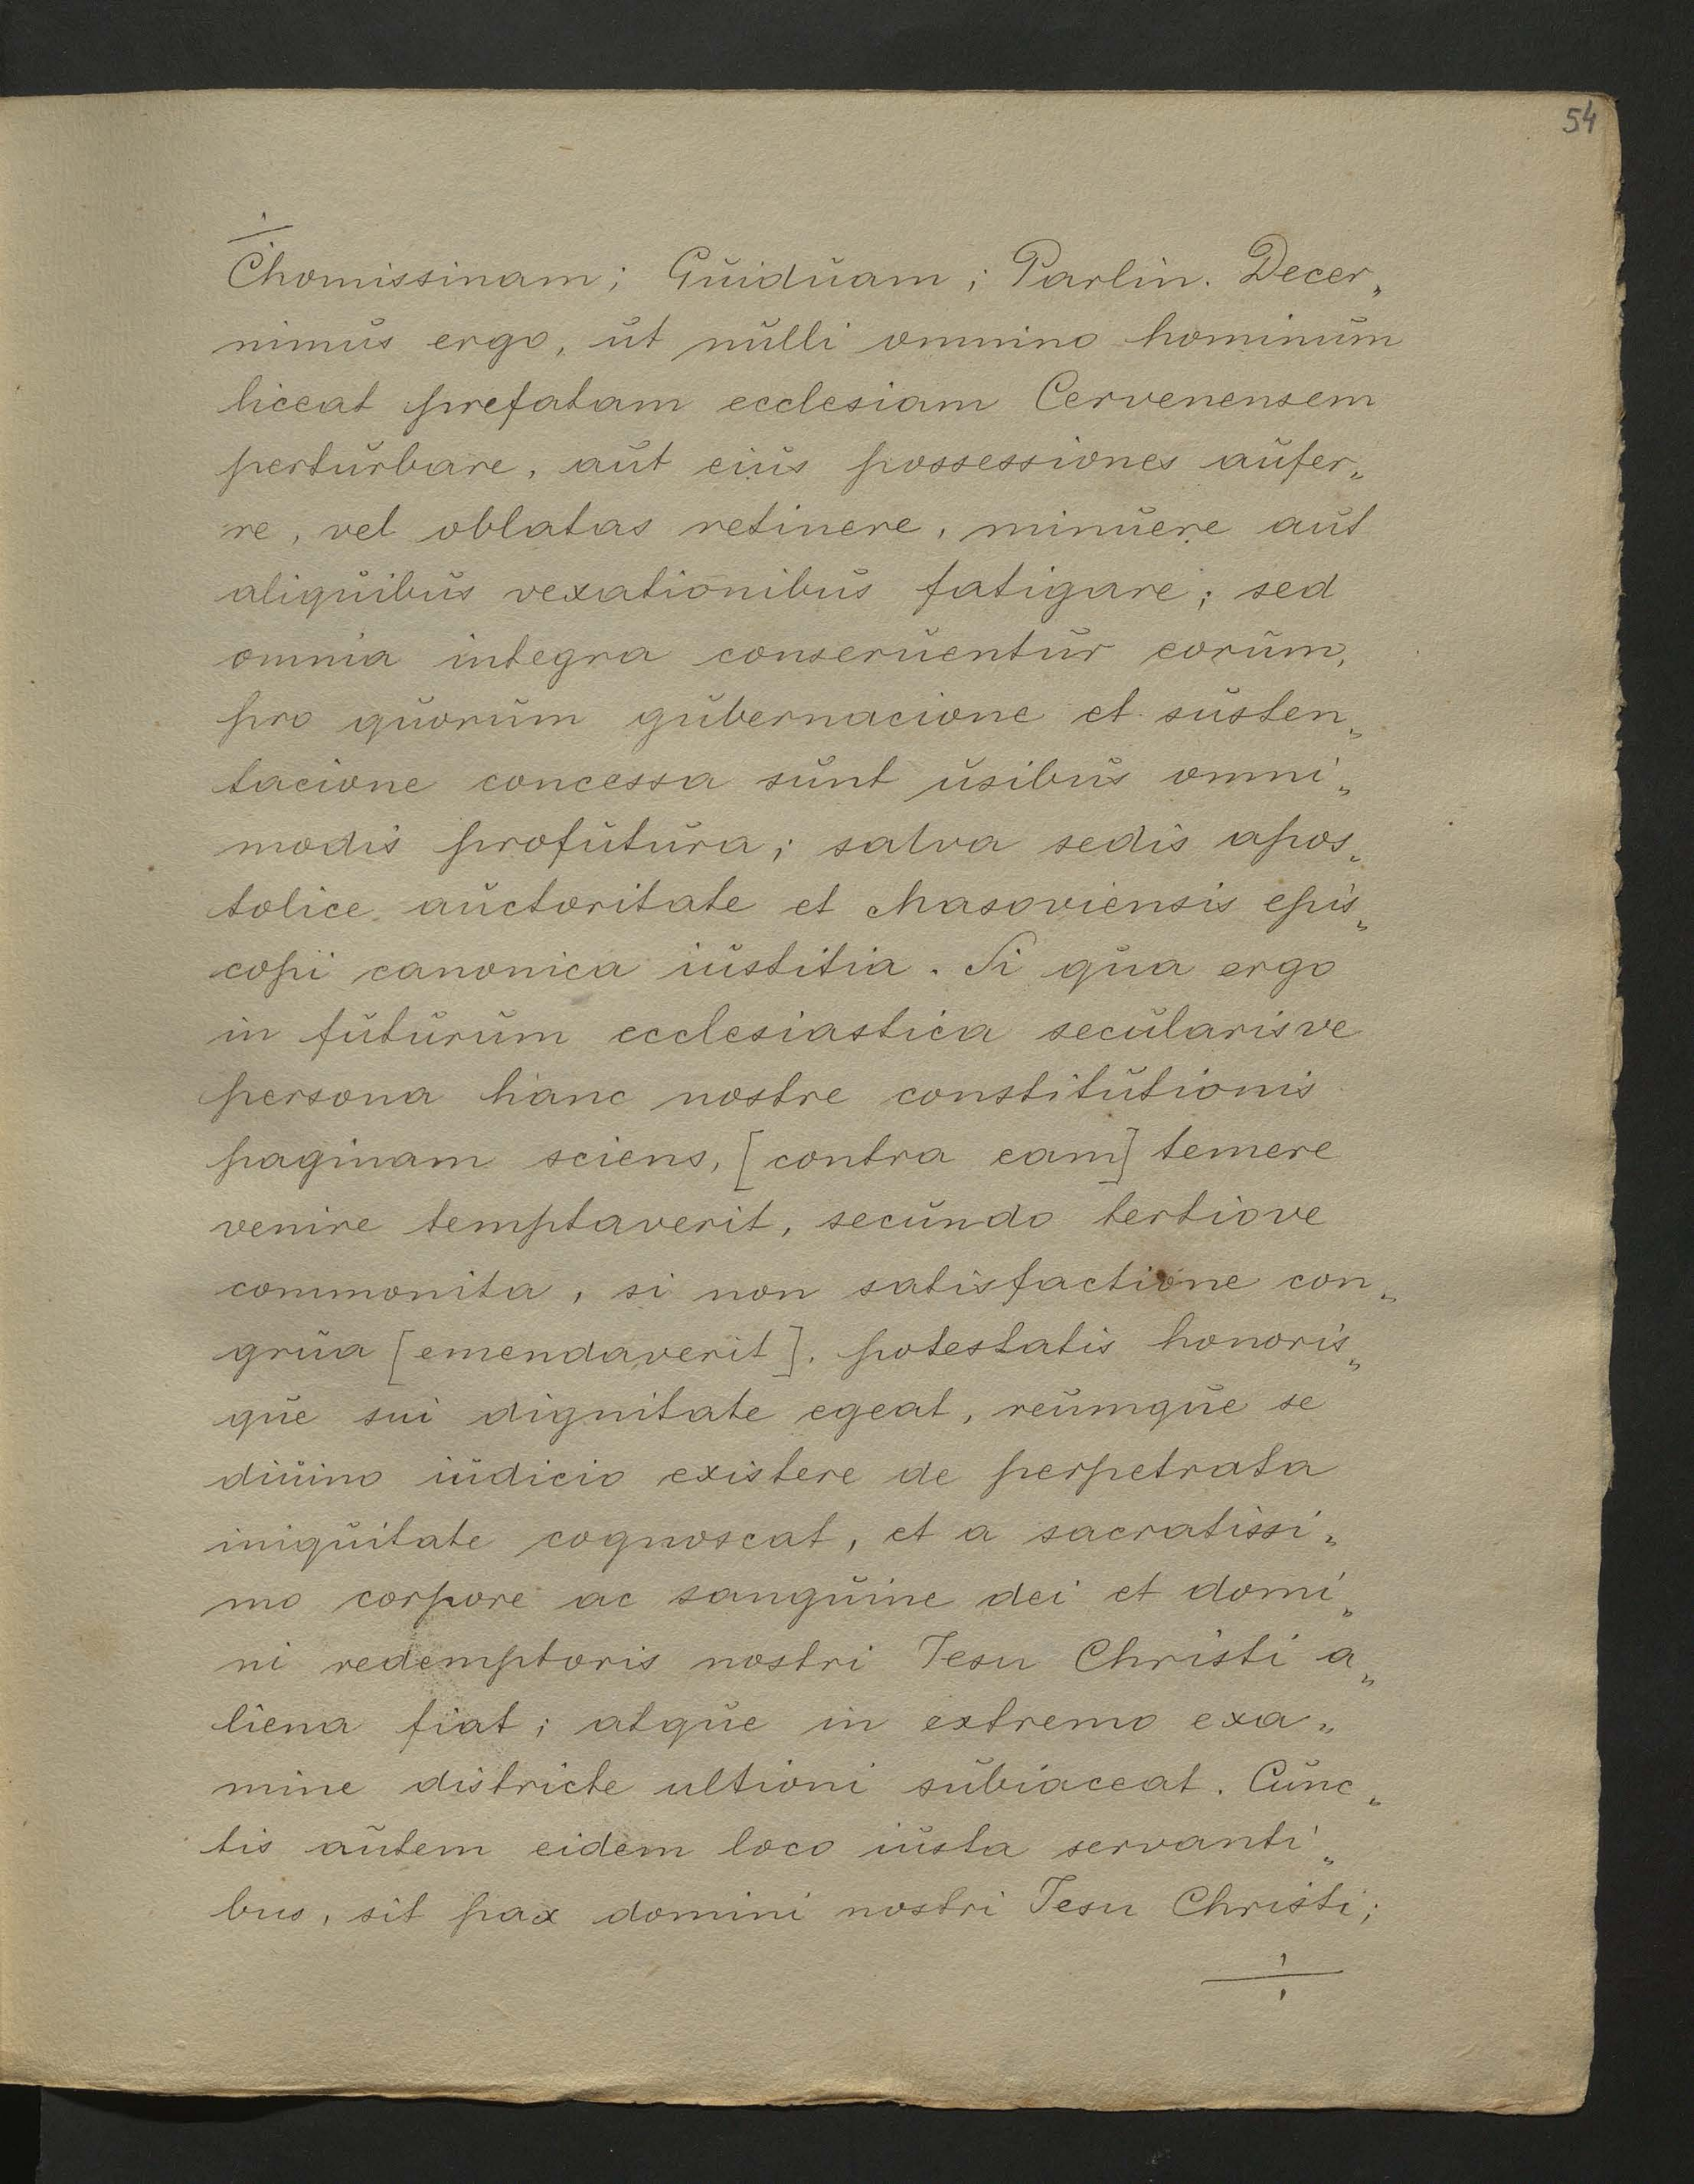 54
Chomissinam; Guiduam; Parlin. Decer„
nimus ergo, ut nulli omnino hominum
liceat prefatam ecclesiam Cervenensem
perturbare, aut eius possessiones aufer„
re, vel oblatas retinere, minuere aut
aliquibus vexationibus fatigare; sed
omnia integra conseruentur eorum,
pro quorum gubernacione et susten„
tacione concessa sunt usibus omni„
modis profutura; salva sedis apos„
tolice auctoritate et Masoviensis epis„
copi canonica iustitia. Si qua ergo
in futurum ecclesiastica secularisve
persona hanc nostre constitutionis
paginam sciens, [contra eam] temere
venire temptaverit, secundo tertiove
commonita, si non satisfactione con„
grua [emendaverit], potestatis honoris„
que sui dignitate egeat, reumque se
diuino iudicio existere de perpetrata
iniquitate cognoscat, et a sacratissi„
mo corpore ac sanguine dei et domi„
ni redemptoris nostri Jesu Christi a„
liena fiat; atque in extremo exa„
mine districte ultioni subiaceat. Cunc„
tis autem eidem loco iusta servanti„
bus, sit pax domini nostri Jesu Christi;